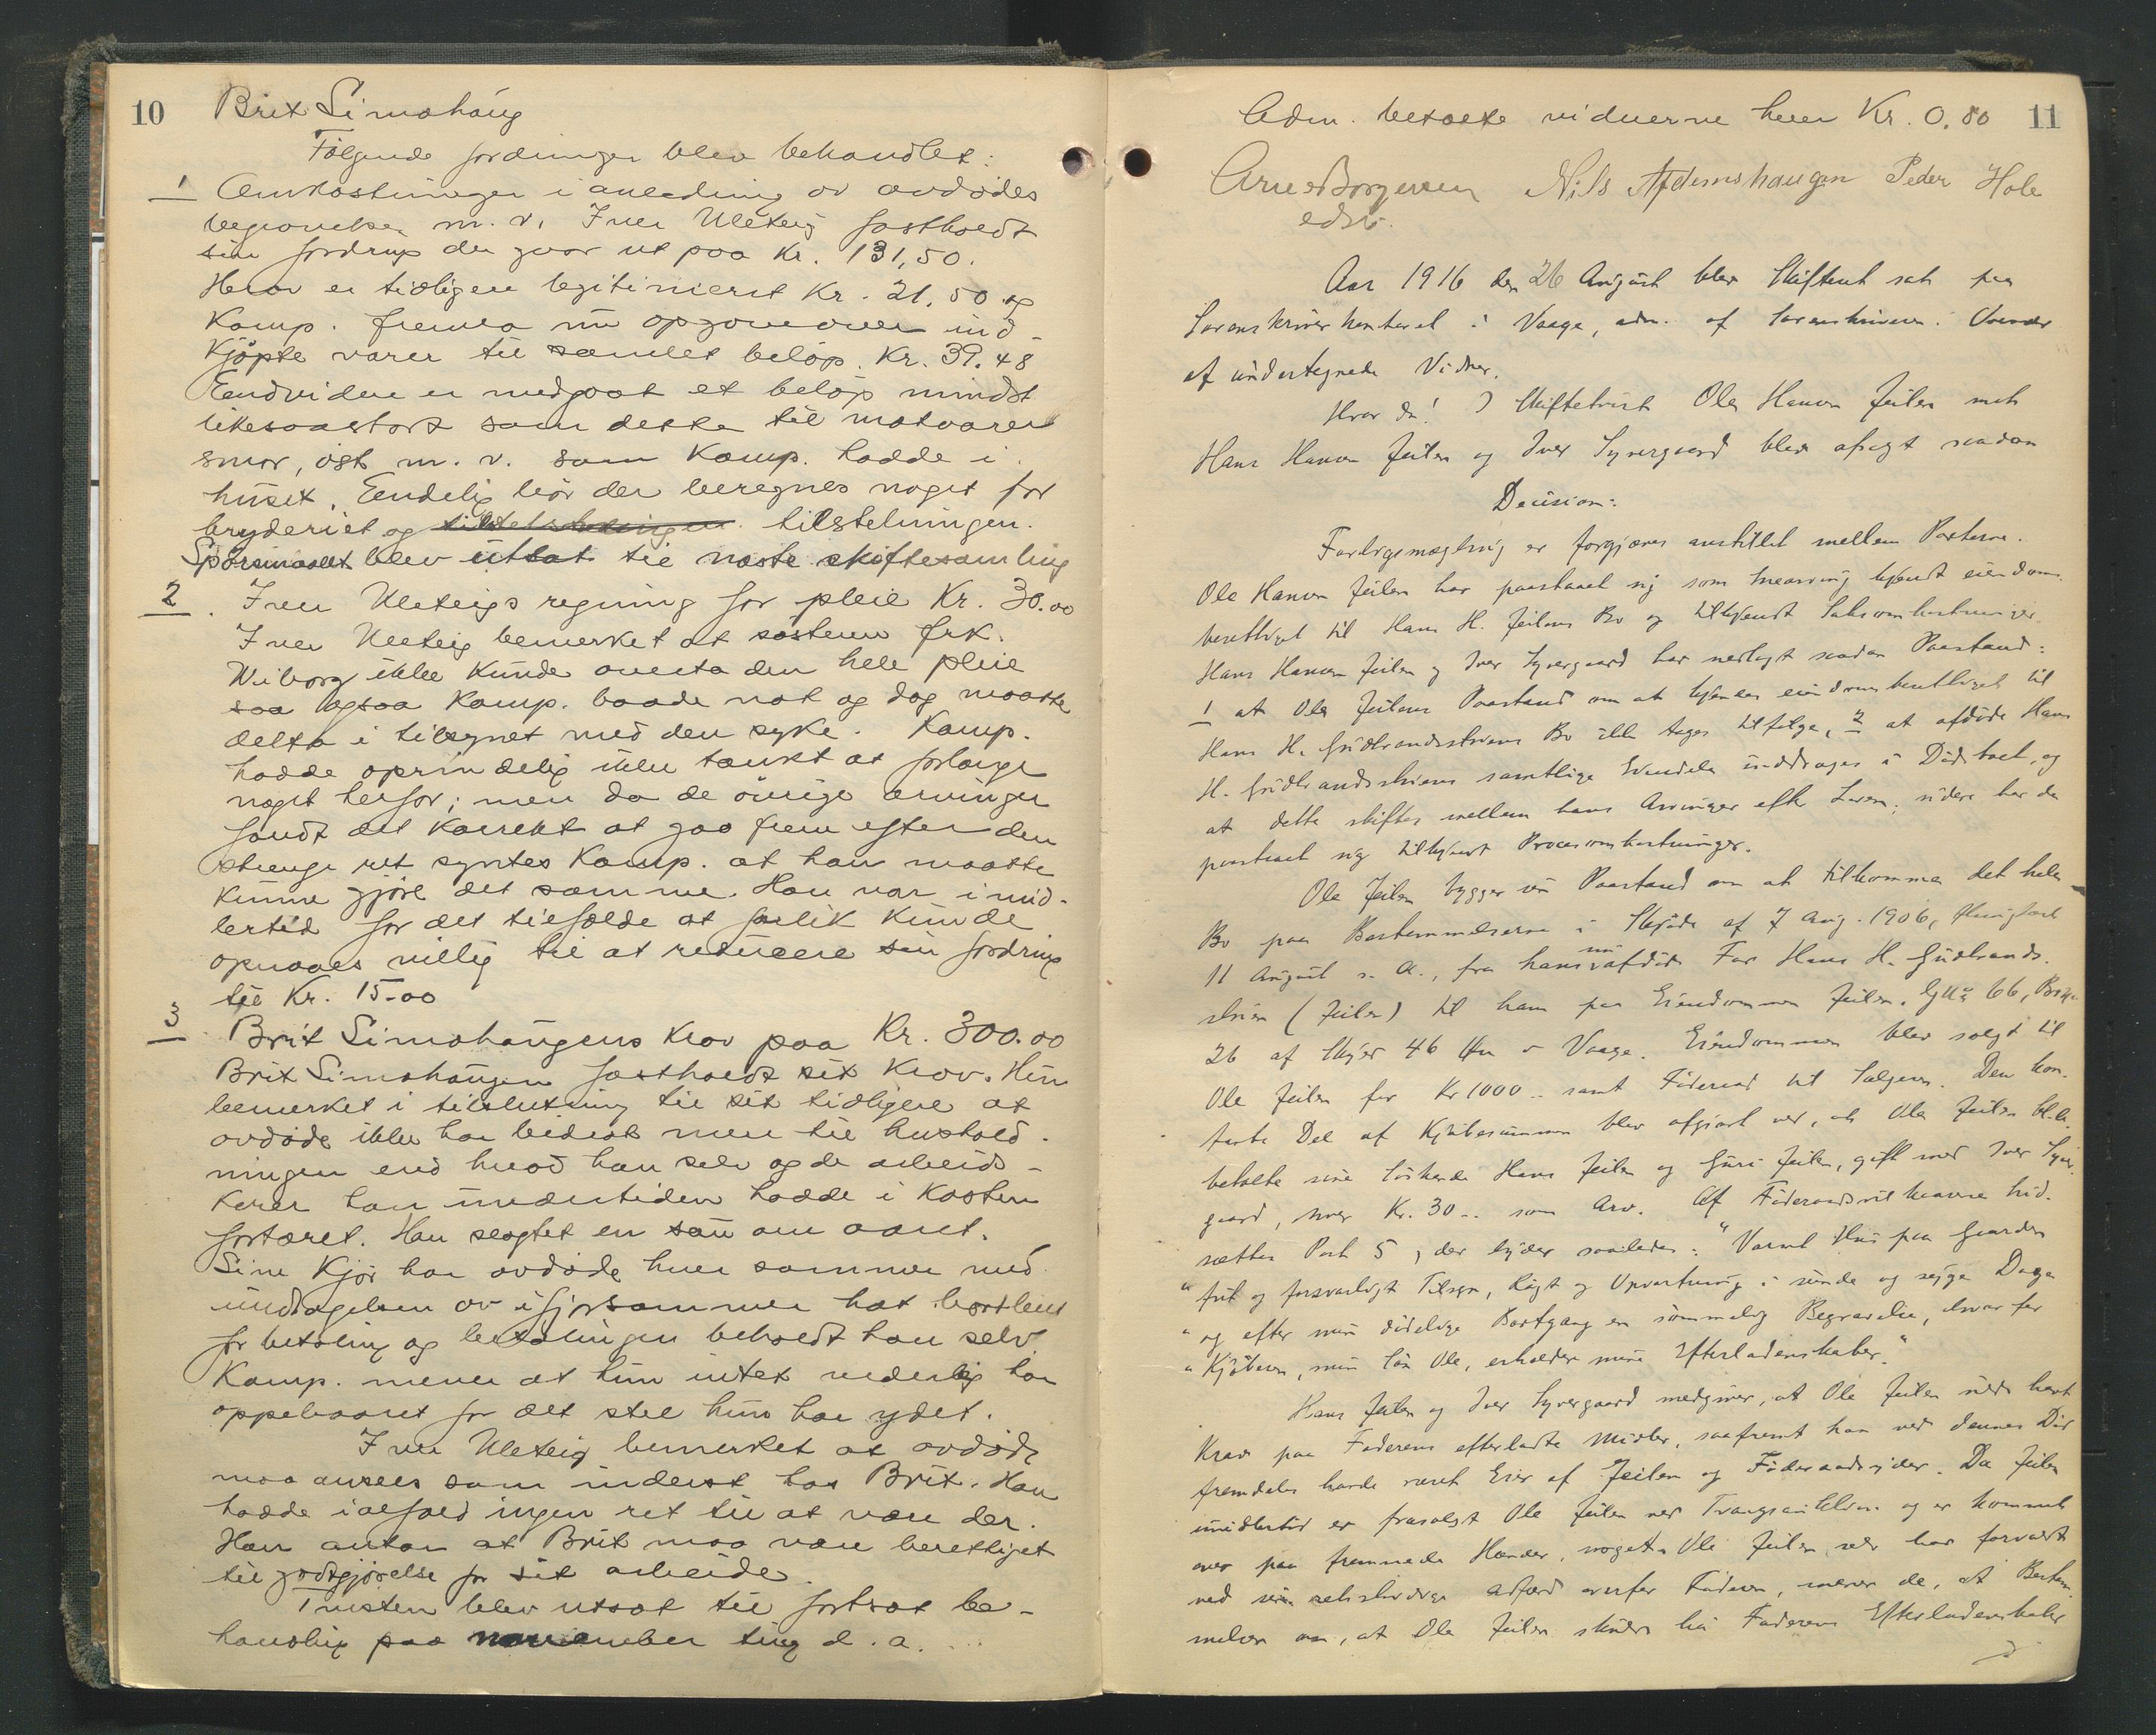 10 Brit Simohaug
Følgende fordringer blev behandlet:
1 Omkostninger i anledning av avdødes
begravelse m. v. Iver Uleteig fastholdt
sin fordring der gaar ut paa Kr. 131,50.
Herav er tidligere legitimeret Kr. 21,50 og
Komp. fremla nu opgave over ind-
kjøpte varer til samlet beløp Kr. 39.48
Endvidere er medgaat et beløp mindst
likesaastort som dette til matvarer
smør, ost m. v. som Komp. hadde i
huset. Endelig bør der beregnes noget for
bryderiet og tilstelningen.
Spørsmaalet blev utsat til næste skiftesamling
2. Iver Uleteigs regning for pleie Kr. 30.00
Iver Uleteig bemerket at søsteren frk.
Wiborg ikke kunde overta den hele pleie
saa ogsaa Komp. baade nat og dag maatte
delta i tilsynet med den syke. Komp.
hadde oprindelig ikke tænkt at forlange
noget herfor; men da de øvrige arvinger
fandt det korrekt at gaa frem efter den
strenge ret syntes Komp. at han maatte
kunne gjøre det samme. Han var imid-
lertid for det tilfælde at forlik kunde
opnaaes villig til at reducere sin fordring
til Kr. 15.00
3 Brit Simohaugens krav paa Kr. 300.00
Brit Simohaugen fastholdt sit krav. Hun
bemerket i tilslutning til sit tidligere at
avdøde ikke har bidrat mere til hushold-
ningen end hvad han selv og de arbeids-
karer han undertiden hadde i kosten
fortæret. Han slagtet en sau om aaret.
Sine kjør har avdøde hver sommer med
undtagelsen av ifjorsommer hat bortleiet
for betaling og betalingen beholdt han selv.
Komp. mener at hun intet vederlag har
oppebaaret for det stel hun har ydet.
Iver Uleteig bemerket at avdøde
maa ansees som inderst hos Brit. Han
hadde ialfald ingen ret til at være der.
Han antar at Brit maa være berettiget
til godtgjørelse for sit arbeide.
Tvisten blev utsat til fortsat be-
handling paa november ting d. a.
Adm. betalte vidnerne hver Kr. 0.80 11
Arne Borgersen Nils Afdemshaugen Peder Hole
edsv.
Aar 1916 den 26 August blev Skifteret sat paa
Sorenskriverkontoret i Vaage, adm. af Sorenskriveren.
af undertegnede Vidner.
Hvor da! I Skiftetvist Ole Hansen Jeilen mot
Hans Hansen Jeilen og Iver Syvergaard blev afsagt saadan
Decision:
Forligsmægling er forgjæves anstillet mellem Parterne.
Ole Hansen Jeilen har paastaaet sig som Enearving kjendt eiendoms-
berettiget til Hans H. Jeilens Bo og tilkjendt Saksomkostninger.
Hans Hansen Jeilen og Iver Syvergaard har nedlagt saadan Paastand:
1 at Ole Jeilens Paastand om at kjendes eiendomsberettiget til
Hans H. Gudbrandsstuens Bo ikke tages tilfølge, 2 at afdøde Hans
H. Gudbrandsstuens samtlige Eiendele inddrages i Dødsboet, og
at dette skiftes mellem hans Arvinger efter Loven; videre har de
paastaaet sig tilkjendt Procesomkostninger.
Ole Jeilen bygger sin Paastand om at tilkomme det hele
Bo paa Bestemmelserne i Skjøde af 7 Aug. 1906, thinglæst
11 August s. A., fra hans nu afdøde Far Hans H. Gudbrands-
stuen (Jeilen) til ham paa Eiendommen Jeilen, G.No 66, Br.No
26 af Skyld 46 Øre i Vaage. Eiendommen blev solgt til
Ole Jeilen for Kr 1000.. samt Føderaad til Sælgeren. Den kon-
tante Del af Kjøbesummen blev afgjort ved, at Ole Jeilen
betalte sine Søskende Hans Jeilen og Guri Jeilen, gift med Iver Syver-
gaard, hver Kr. 30.. som Arv. Af Føderaadsvilkaarene hid-
sættes Post 5, der lyder saaledes: "Varmt Hus paa Gaarden
"frit og forsvarligt Tilsyn, Røgt og Opvartning i sunde og syge Dage
"og efter min dødelige Bortgang en sømmelig Begravelse, hvorfor
"Kjøberen, min Søn Ole, erholder mine Efterladenskaber."
Hans Jeilen og Iver Syvergaard medgiver, at Ole Jeilen vilde havt
Krav paa Faderens efterladte Midler, saafremt han ved dennes Død
fremdeles havde været Eier af Jeilen og Føderaadsyder. Da Jeilen
imidlertid er frasolgt Ole Jeilen ved Tvangsauktion og er kommet
over paa fremmede Hænder, noget Ole Jeilen selv har forvoldt
ved sin retsstridige Adfærd overfor Faderen, mener de, at Bestem-
melsen om, at Ole Jeilen skulde ha Faderens Efterladenskaber